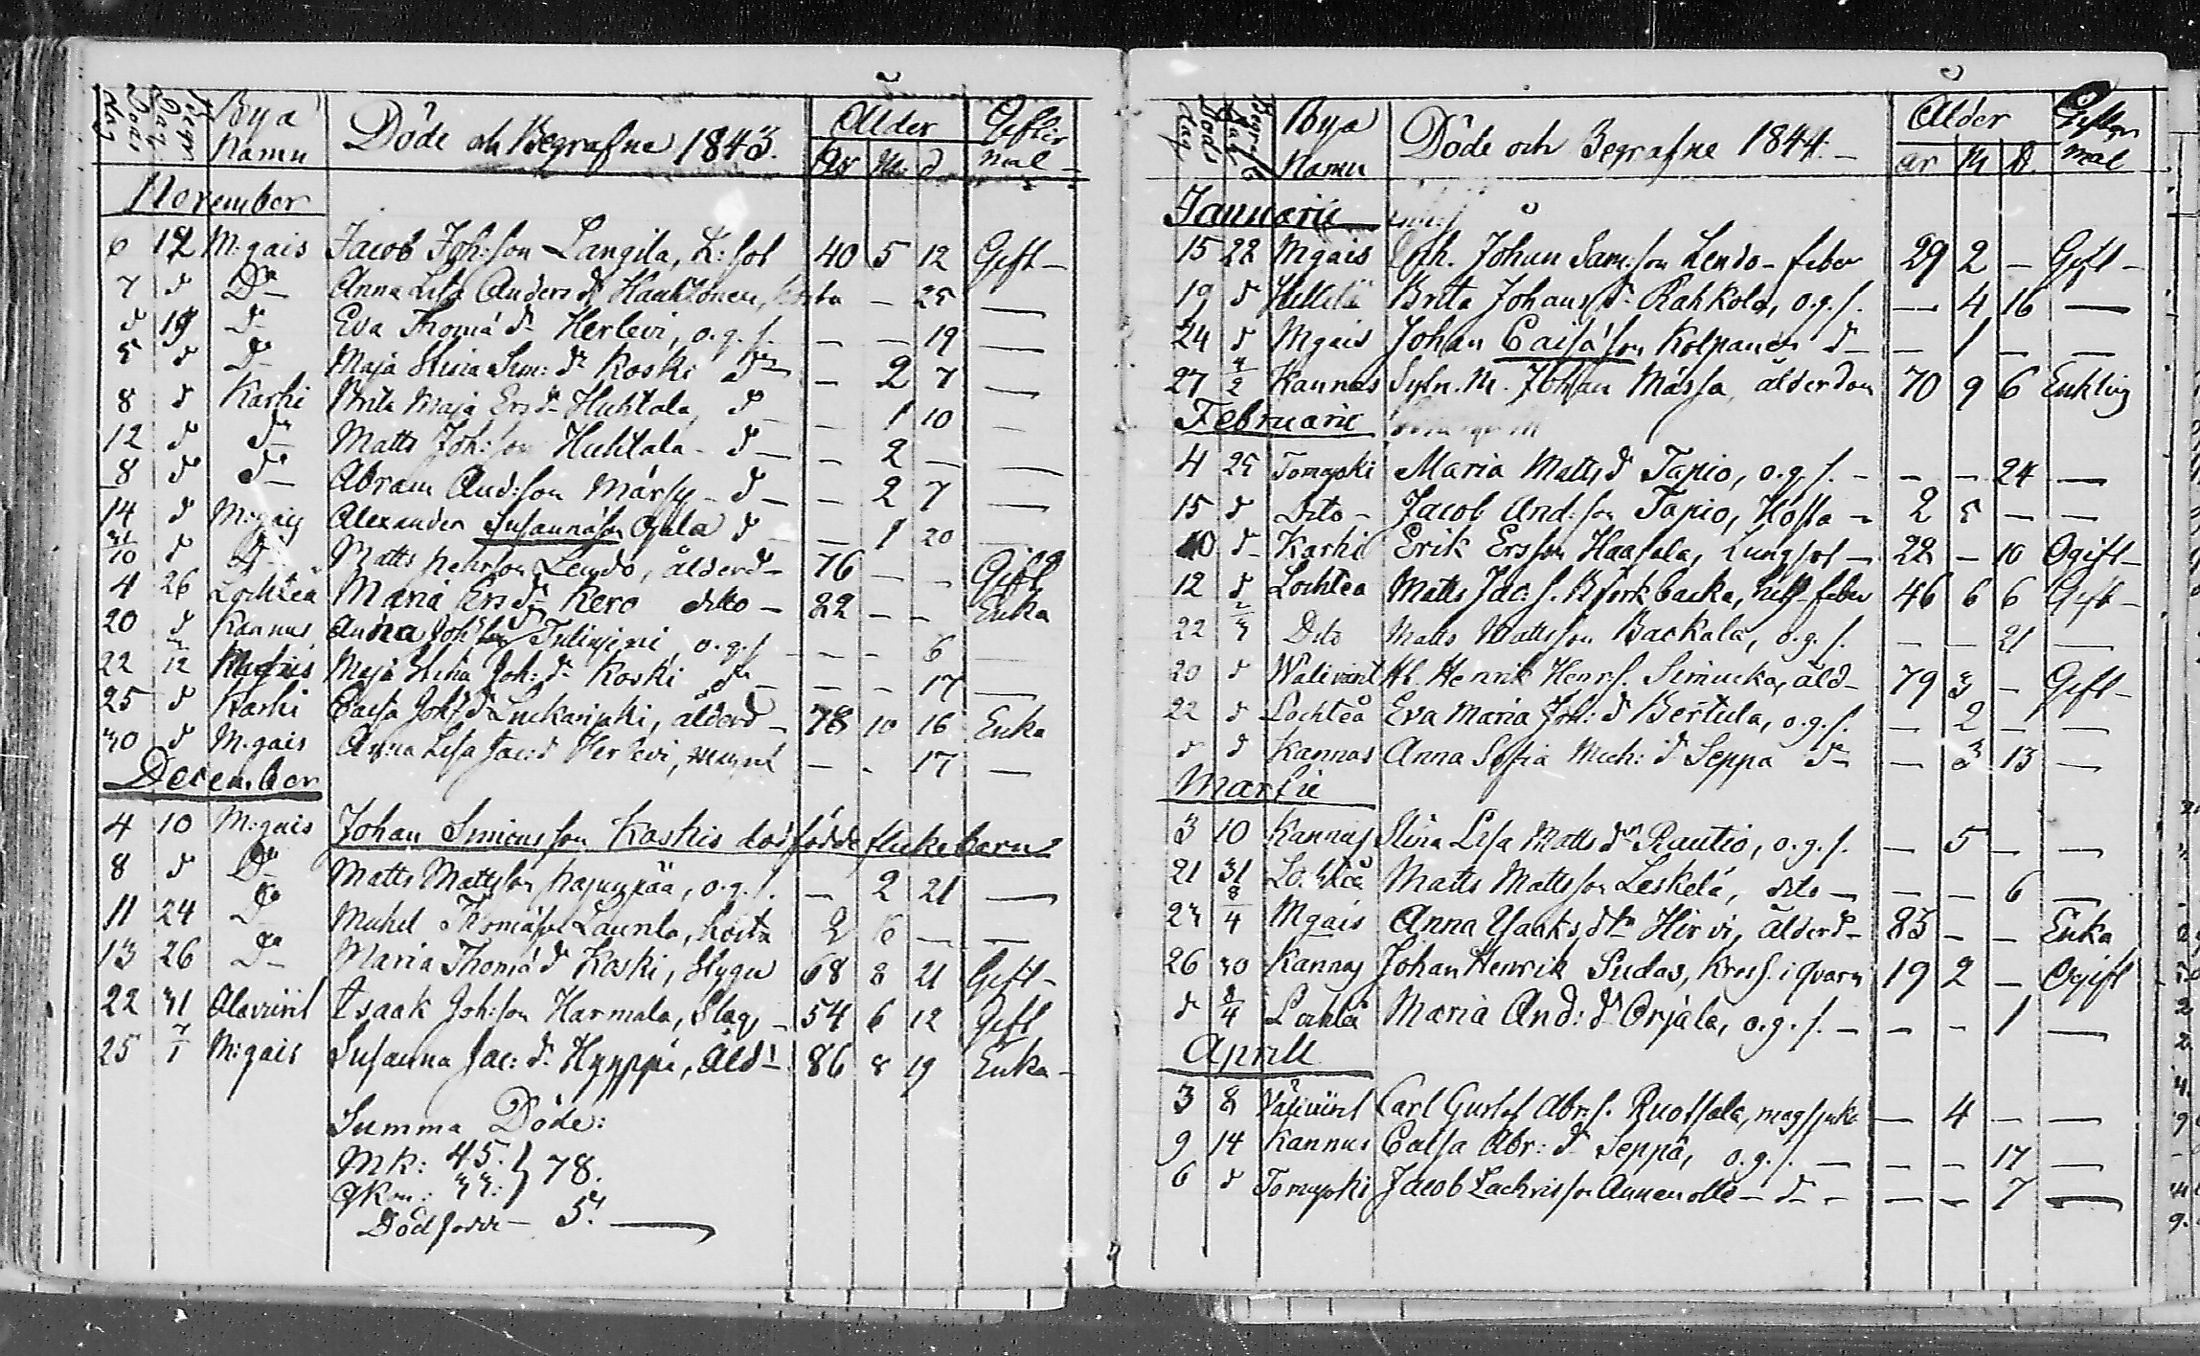 Döds dag Begr. dag Bya Namn Döde och Begrafne 1843. Ålder År M. d. Giftermål
November
6 12 M:gais Jacob Joh:son Langila, L:sot 40 5 12 Gift -
7 d D:o Anna Lisa Anders dr Hanhonen, hosta - 25 —
d 19 D:o Eva Thomæ dr Herlevi, o.g.s. - - 19 —
5 d D:o Maja Stina Sim: dr Koski d:o - 2 7 —
8 d Karhi Brita Maja Ers dr Huhtala, d:o - 1 10 -
12 d d:o Matts Joh:son Huhtala - d - - 2 - —
8 d d:o Abram And:son Märsy - d - - 2 7 —
14 d M:gais Alexander Susannæson Ojala d - - 1 20 -
31/10 d D:o Matts Pehrson Lendo, ålderd - 76 - - Gift
4 26 Lochteå Maria Ers dr Kero dito - 82 - - Enka
20 d Kannus Anna Joh: o.g.s. - - 6 -
22 12 M:gais Maja Stina Joh: dr Koski d:o - - - 17 —
25 d Karhi Caisa Joh: dr ålderd - 78 10 16 Enka
30 d M:gais Anna Lisa Jac: d Herlevi, - - 17 —
December
4 10 M:gais Johan Simonsson Koskis dödfödde flickebarn
8 d D:o Matts Mattsson Pajunpää, o.g.s. - 2 21 —
11 24 D:o Michel Thomæson Launla, hosta 2 6 - —
13 26 D:o Maria Thomæ d Koski, Stygn 68 8 21 Gift -
22 31 Alaviirret Isaak Joh:son Harmala, Slag, - 54 6 12 Gift
25 7/1 M:gais Susanna Jac: dr Hyyppä, Åld - 86 8 19 Enka -
Summa Döde:
Mk: 45. } 78.
Qkön: 33:
Dödfödde - 5. —
Döds dag Begr. dag Bya Namn Döde och Begrafne 1844. - Ålder år M D. Giftermål
Januarii
15 22 M:gais Johan Sam:son Lendo - feber 29 2 - Gift -
19 d Hillilä Brita Johans dr Rahkola, o.g.s. — 4 16 —
24 d M:gais Johan Caisæson Kolpanen d - - 1 - -
27 4/2 Kannus Sysn. M. Johan Mässa, ålderdom 70 9 6 Enkling
Februarii
4 25 Tomujoki Maria Matts d Tapio, o.g.s. - - - 24 —
15 d Dito - Jacob And:son Tapio, Hosta - 2 5 - -
10 d - Karhi Erik Ersson Haapala, Lungsot - 22 - 10 Ogift -
12 d Lochteå Matts Jac: s. Björkbacka, feber 46 6 6 Gift -
22 2/3 Dito Matts Mattsson Backala, o.g.s. - - 21 —
20 d Waliviirt Henrik Henr:s. Simucka, åld - 79 3 - Gift -
22 d Lochteå Eva Maria Joh: d Bertula, o.g.s. - 2 - -
d d Kannas Anna Sofia Mich: d Seppä d:o — 3 13 —
Martii
3 10 Kannas Stina Lisa Matts dr Rautio, o.g.s. — 5 - —
21 31 Lochteå Matts Mattsson Leskelä, dito — - - 6 —
23 8/4 M:gais Anna Isaaks dr Hirvi, ålderd - 83 - - Enka
26 30 Kannas Johan Henrik Sudas, i qvarn 19 2 - Ogift
d 8/4 Lochteå Maria And: dr Orjala, o.g.s. - - - 1 —
Aprill
3 8 Wäliviirt Carl Gustaf Abr:s. Ruotsala, magsjuka — 4 - —
9 14 Kannus Caisa Abr: dr Seppä, o.g.s. — - - 17 —
6 d Tomujoki Jacob Zachrisson Annanolli - d - - - - 7 —